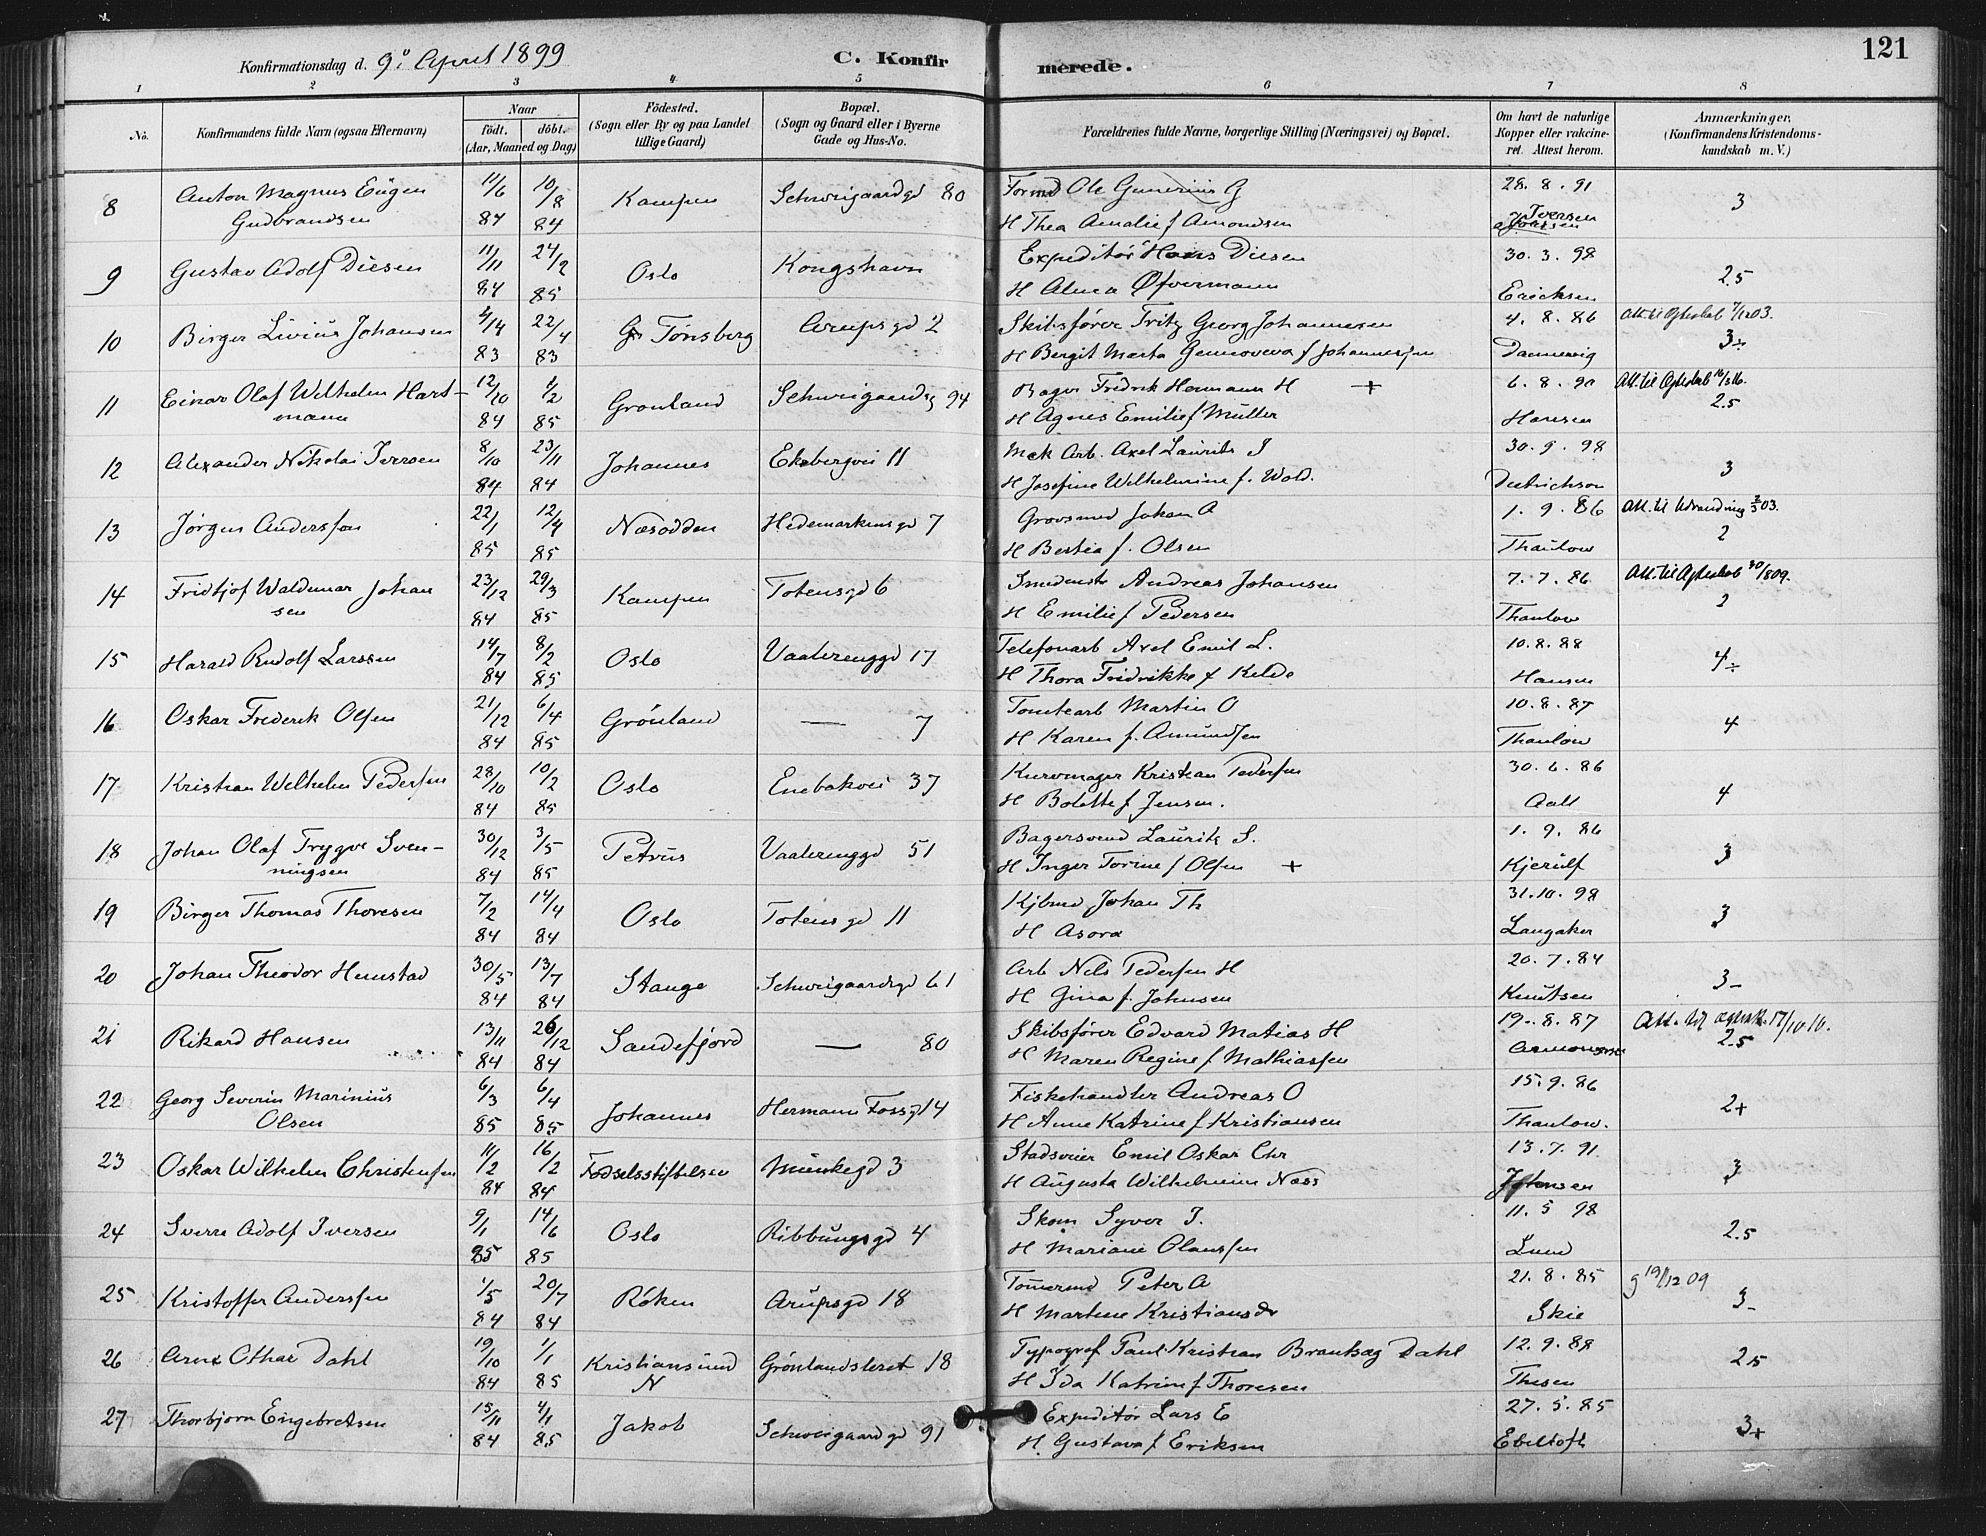 121
Konfirmationsdag d. 9. April 1899 C. Konfirmerede.
1 2 3 4 5 6 7 8
No. Konfirmandens fulde Navn (ogsaa Efternavn) Naar födt. döbt. (Aar, Maaned og Dag) Födested. (Sogn eller By og paa Landet tillige Gaard) Bopæl. (Sogn og Gaard eller i Byerne Gade og Hus-No. Forældrenes fulde Navne, borgerlige Stilling (Næringsvei) og Bopæl. Om havt de naturlige Kopper eller vakcineret. Attest herom. Anmærkninger. (Konfirmandens Kristendomskundskab m. V.)
8 Anton Magnus Eugen 11/6 10/8 Kampen Schweigaardgd 80 Formd Ole Gunerius G 28.8.91 3
Gudbrandsen 84 84 H Thea Amalie f Amondsen Iversen
9 Gustav Adolf Diesen 11/11 24/2 Oslo Kongshavn Expeditör Hans Diesen 30.3.98 2.5
84 85 H Alma Øfvermann Ericksen
10 Birger Livius Johansen 4/4 22/4 Tönsberg Arupsgd 2 Skibsförer Fritz Georg Johannesen 4.8.86 Att. til Ægteskab 7/12 03.
83 83 H Bergit Marta Gennoveva f Johannessen Dannevig 3÷
11 Einar Olaf Wilhelm Hart- 12/10 1/2 Gronland Schweigaardsg 94 Bager Fredrik Hermann H + 6.8.90 Att. til Ægteskab 16/3 16.
mann 84 85 H Agnes Emilie f Müller Hansen 2.5
12 Alexander Nikolai Iversen 8/10 23/11 Johannes Ekebergvei 11 Mek Arb. Axel Laurits I 30.9.98 3
84 84 H Josefine Wilhelmine f. Wold. Dietrichson
13 Jørgen Anderssen 22/1 12/4 Næsodden Hedemarkensgd 7 Grovsmed Johan A 1.9.86 Att. til Udvandring 3/3 03.
85 85 H Bertea f. Olsen Thaulow 2
14 Fridtjof Waldemar Johan 23/12 29/3 Kampen Totensgd 6 Smedmst Andreas Johansen 7.7.86 Att. til Ægteskab 30/8 09.
sen 84 85 H Emilie f Pedersen Thaulow 2
15 Harald Rudolf Larssen 14/7 8/2 Oslo Vaalerenggd 17 Telefonarb Axel Emil L. 10.8.88 4÷
84 85 H Thora Fredrikke f Kelde Hansen
16 Oskar Frederik Olsen 21/12 6/4 Grönland — 7 Tomtearb Martin O 10.8.87 4
84 85 H Karen f. Amundsen Thaulow
17 Kristian Wilhelm Pedersen 28/10 10/2 Oslo Enebakvei 37 Kurvmager Kristian Pedersen 30.6.86 4
84 85 H Bolette f Jensen. Aall
18 Johan Olaf Trygve Sven- 30/12 3/5 Petrus Vaalerenggd 51 Bagersvend Laurits S. 1.9.86 3
ningsen 84 85 H Inger Torine f Olsen + Kjerulf
19 Birger Thomas Thoresen 7/2 14/4 Oslo Totensgd 11 Kjbmd Johan Th 31.10.98 3
84 84 H Asora Langaker
20 Johan Theodor Hemstad 30/5 13/7 Stange Schweigaardsgd 61 Arb Nils Pedersen H 20.7.84 3-
84 84 H Gina f. Johnsen Knutsen
21 Rikard Hansen 13/11 26/12 Sandefjord — 80 Skibsförer Edvard Matias H 19.8.87 Att. til ægtesk. 17/10 10.
84 84 H Maren Regine f Mathiassen 2.5
22 Georg Severin Marinius 6/3 6/4 Johannes Hermann Fossgd 14 Fiskehandler Andreas O 15.9.86 2+
Olsen 85 85 H Anne Katrine f Kristiansen Thaulow.
23 Oskar Wilhelm Christensen 11/2 16/2 Födselsstiftelsen Munkegd 3 Stadsveier Emil Oskar Chr 13.7.91 3
84 84 H Augusta Wilhelmine Næss
24 Sverre Adolf Iversen 9/1 14/6 Oslo Ribbungsgd 4 Skom Syver I. 11.5 98 2.5
85 85 H Mariane Olaussen Lund
25 Kristoffer Anderssen 1/5 20/7 Röken Arupsgd 18 Tömermd Peter A 21.8.85 g 19/12 09
84 84 H Martine Kristiansdr Skie 3-
26 Arne Othar Dahl 19/10 1/1 Kristiansund Grönlandsleret 18 Typograf Paul Kristian Dahl 12.9.88 2.5
84 85 N H Ida Katrine f Thoresen Thesen
27 Thorbjorn Engebretsen 15/11 4/1 Jakob Schweigaardgd 91 Expeditör Lars E 27.5.85 3+
84 85 H. Gustava f Eriksen Ebeltoft